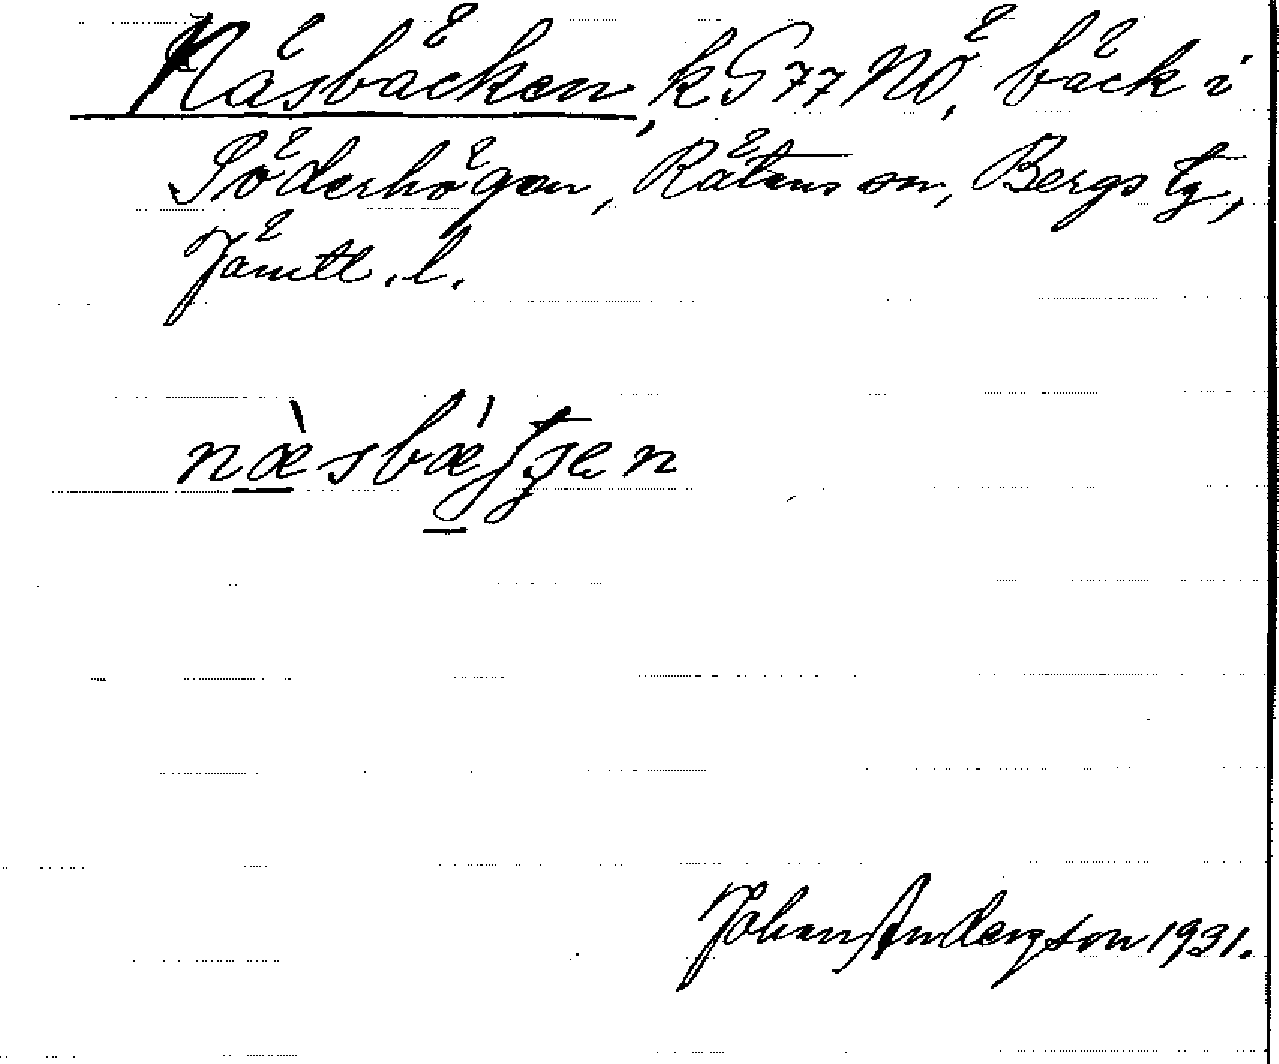 Näsbäcken, kG77NÖ, bäck i
Söderhögen, Rätans sn, Bergs tg,
Jämtl. l.
Johan Andersson 1931.